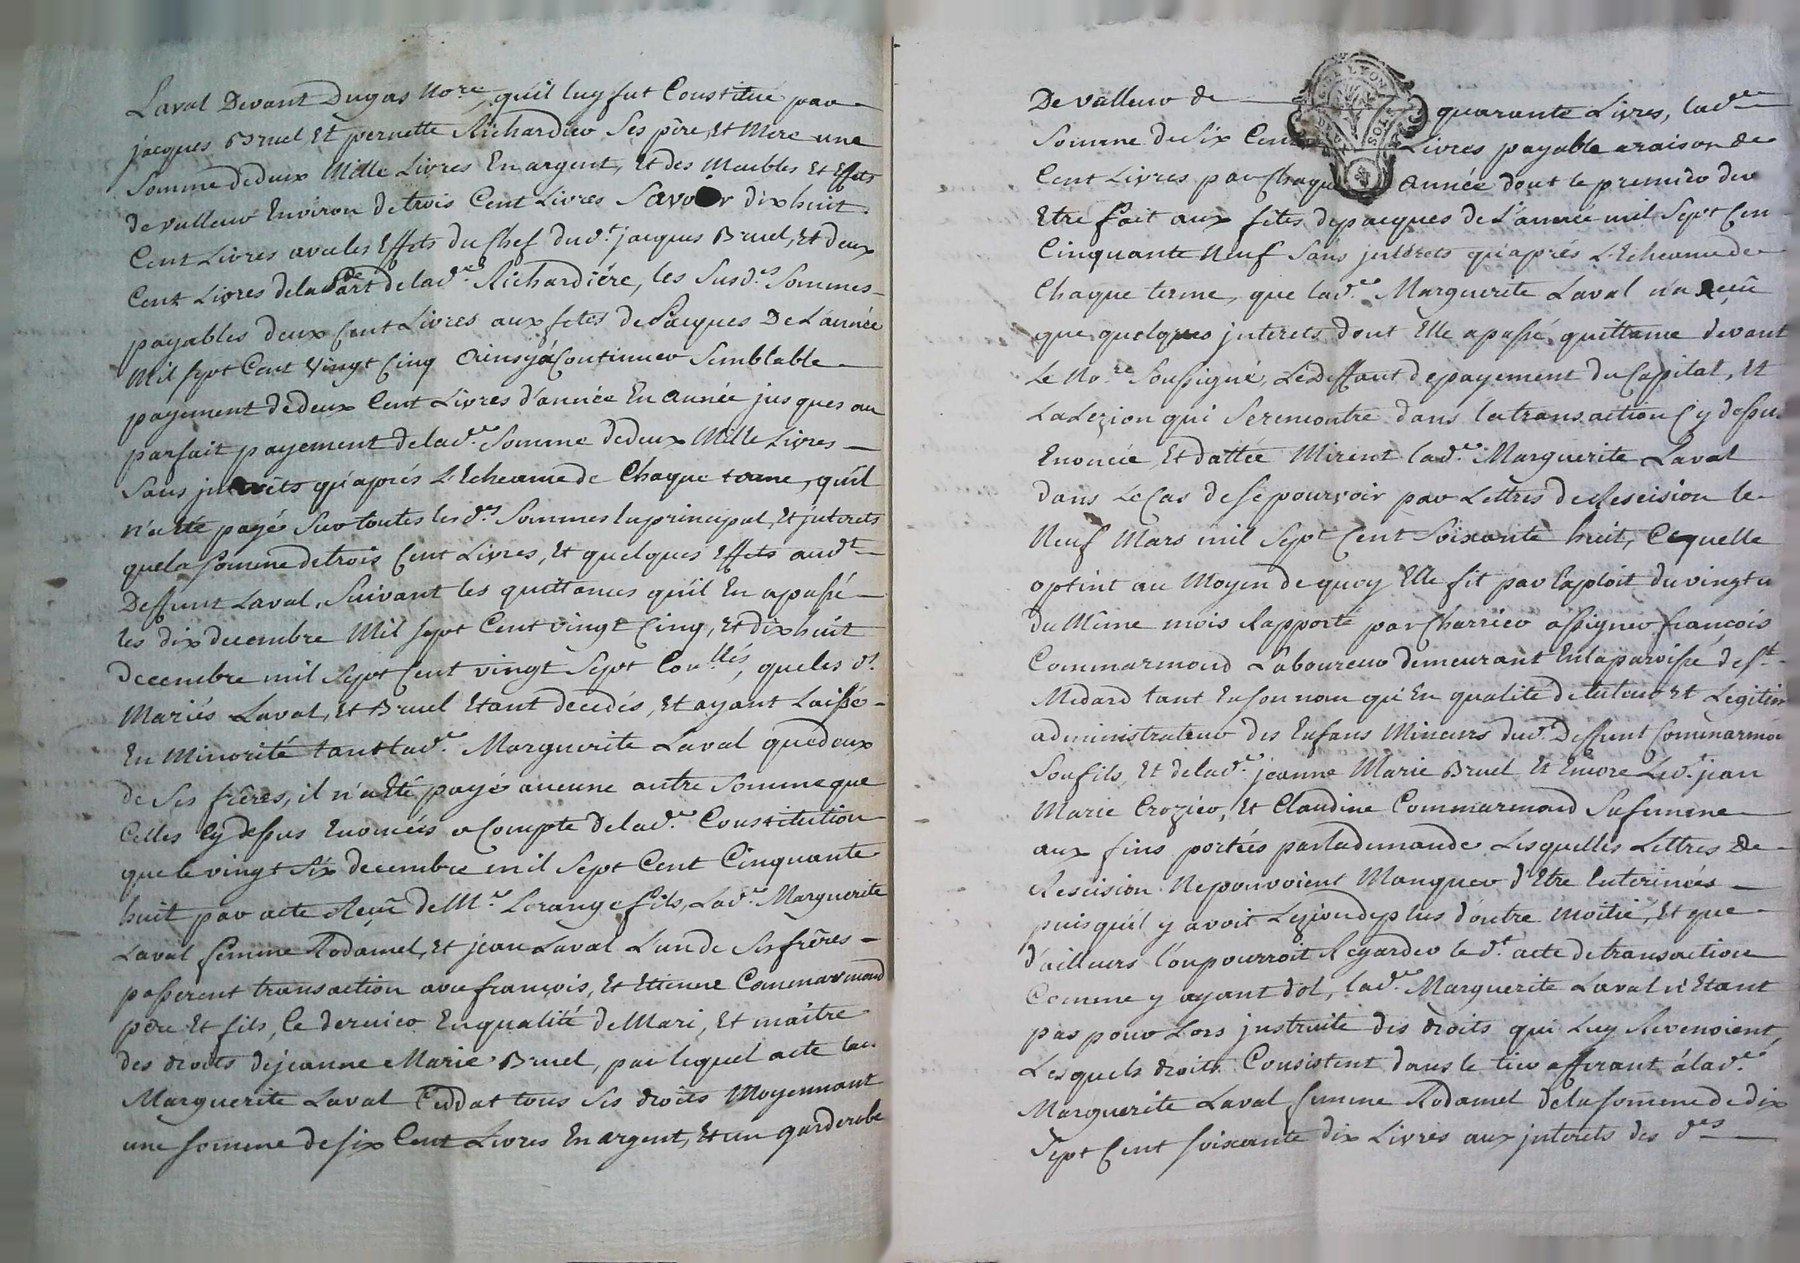 Laval Devant Dugas No.re, qu'il luy fut Constitué par
jacques Bruel Et pernette Richardier Ses père, Et Mere une
Somme de deux Mille Livres En argent, Et des Meubles Et Effets
de valleur Environ de trois Cent Livres Savoir dix huit
Cent Livres avec les Effets du Chef dud.t jacques Bruel, Et deux
Cent Livres de la Part de lad.e Richardiére, les Susd.s Sommes
payables deux Cent Livres aux fêtes de Pacques De L'année
Mil Sept Cent Vingt Cinq Ainsy à Continuer Semblable
payement de deux Cent Livres d'année En année jusques au
parfait payement de lad.e Somme de deux Mille Livres
Sans jnterêts qu'aprés L'Echeance de Chaque terme, qu'il
n'a été payé Sur toutes les d.es Sommes En principal, Et jnterets
que la Somme de trois Cent Livres, Et quelques Effets aud.t
Deffunt Laval, Suivant les quittances qu'il En a passé
les dix decembre Mil Sept Cent vingt Cinq, Et dix huit
decembre mil Sept Cent vingt Sept Con.llés, que les d.t
Mariés Laval, Et Bruel Etant decedés, Et ayant Laissé
En Minorité tant lad.e Marguerite Laval que deux
de Ses frères, il n'a Eté payé aucune autre Somme que
Celles Cy dessus Enoncées a Compte de lad.e Constitution
que le vingt Six decembre mil Sept Cent Cinquante
huit par acte Reçu de M.e Lorange fils, Lad.e Marguerite
Laval femme Rodamel, Et jean Laval L'un de Ses frères
passerent transaction avec françois, Et Etienne Commarmond
père Et fils, Ce dernier En qualité de Mari, Et maître
des droits de jeanne Marie Bruel, par lequel acte lad.
Marguerite Laval Cedda tous Ses droits Moyennant
une Somme de Six Cent Livres En argent, Et un garderobe
De valleur de quarante Livres, lad.e
Somme de Six Cent Livres payable a raison de
Cent Livres par Chaque Année dont le premier dev
Etre fait aux fêtes de pacques de L'année mil Sept Cen
Cinquante Neuf Sans jnterets qu'aprés L'Echeance de
Chaque terme, que lad.e Marguerite Laval n'a Reçu
que quelques jnterets dont Elle a passé quittance devant
Le No.re Soussigné, Le Deffaut de payement du Capital, Et
La Lezion qui Se remontre dans la transaction Cy dessus
Enoncée, Et dattée Mirent lad.e Marguerite Laval
dans Le Cas de Se pourvoir par Lettres de Rescision le
Neuf Mars mil Sept Cent Soixante huit, Ce quelle
optint au Moyen de quoy Elle fit par Exploit du vingt u
du Même mois Rapporté par Charrier assigner françois
Commarmond Laboureur demeurant En la paroisse de S.t
Medard tant En Son nom qu'En qualité de tuteur Et Legitim
administrateur des Enfans Mineurs dud.t Deffunt Commarmon
Son fils, Et de lad.e jeanne Marie Bruel Et Encore Led.t jean
Marie Crozier, Et Claudine Commarmond Sa femme
aux fins portées par la demande Lesquelles Lettres De
Rescision Ne pouvoient Manquer d'Etre Enterinées
puisqu'il y avoit Lezion de plus d'outre Moitié, Et que
d'ailleurs l'on pourroit Regarder le d.t acte de transaction
Comme y ayant dol, lad.e Marguerite Laval n'Etant
pas pour Lors jnstruite des droits qui Luy Revenoient,
Lesquels droits Consistent dans le tier afferant à lad.e
Marguerite Laval femme Rodamel de la Somme de dix
Sept Cent Soixante dix Livres aux jnterets des d.es